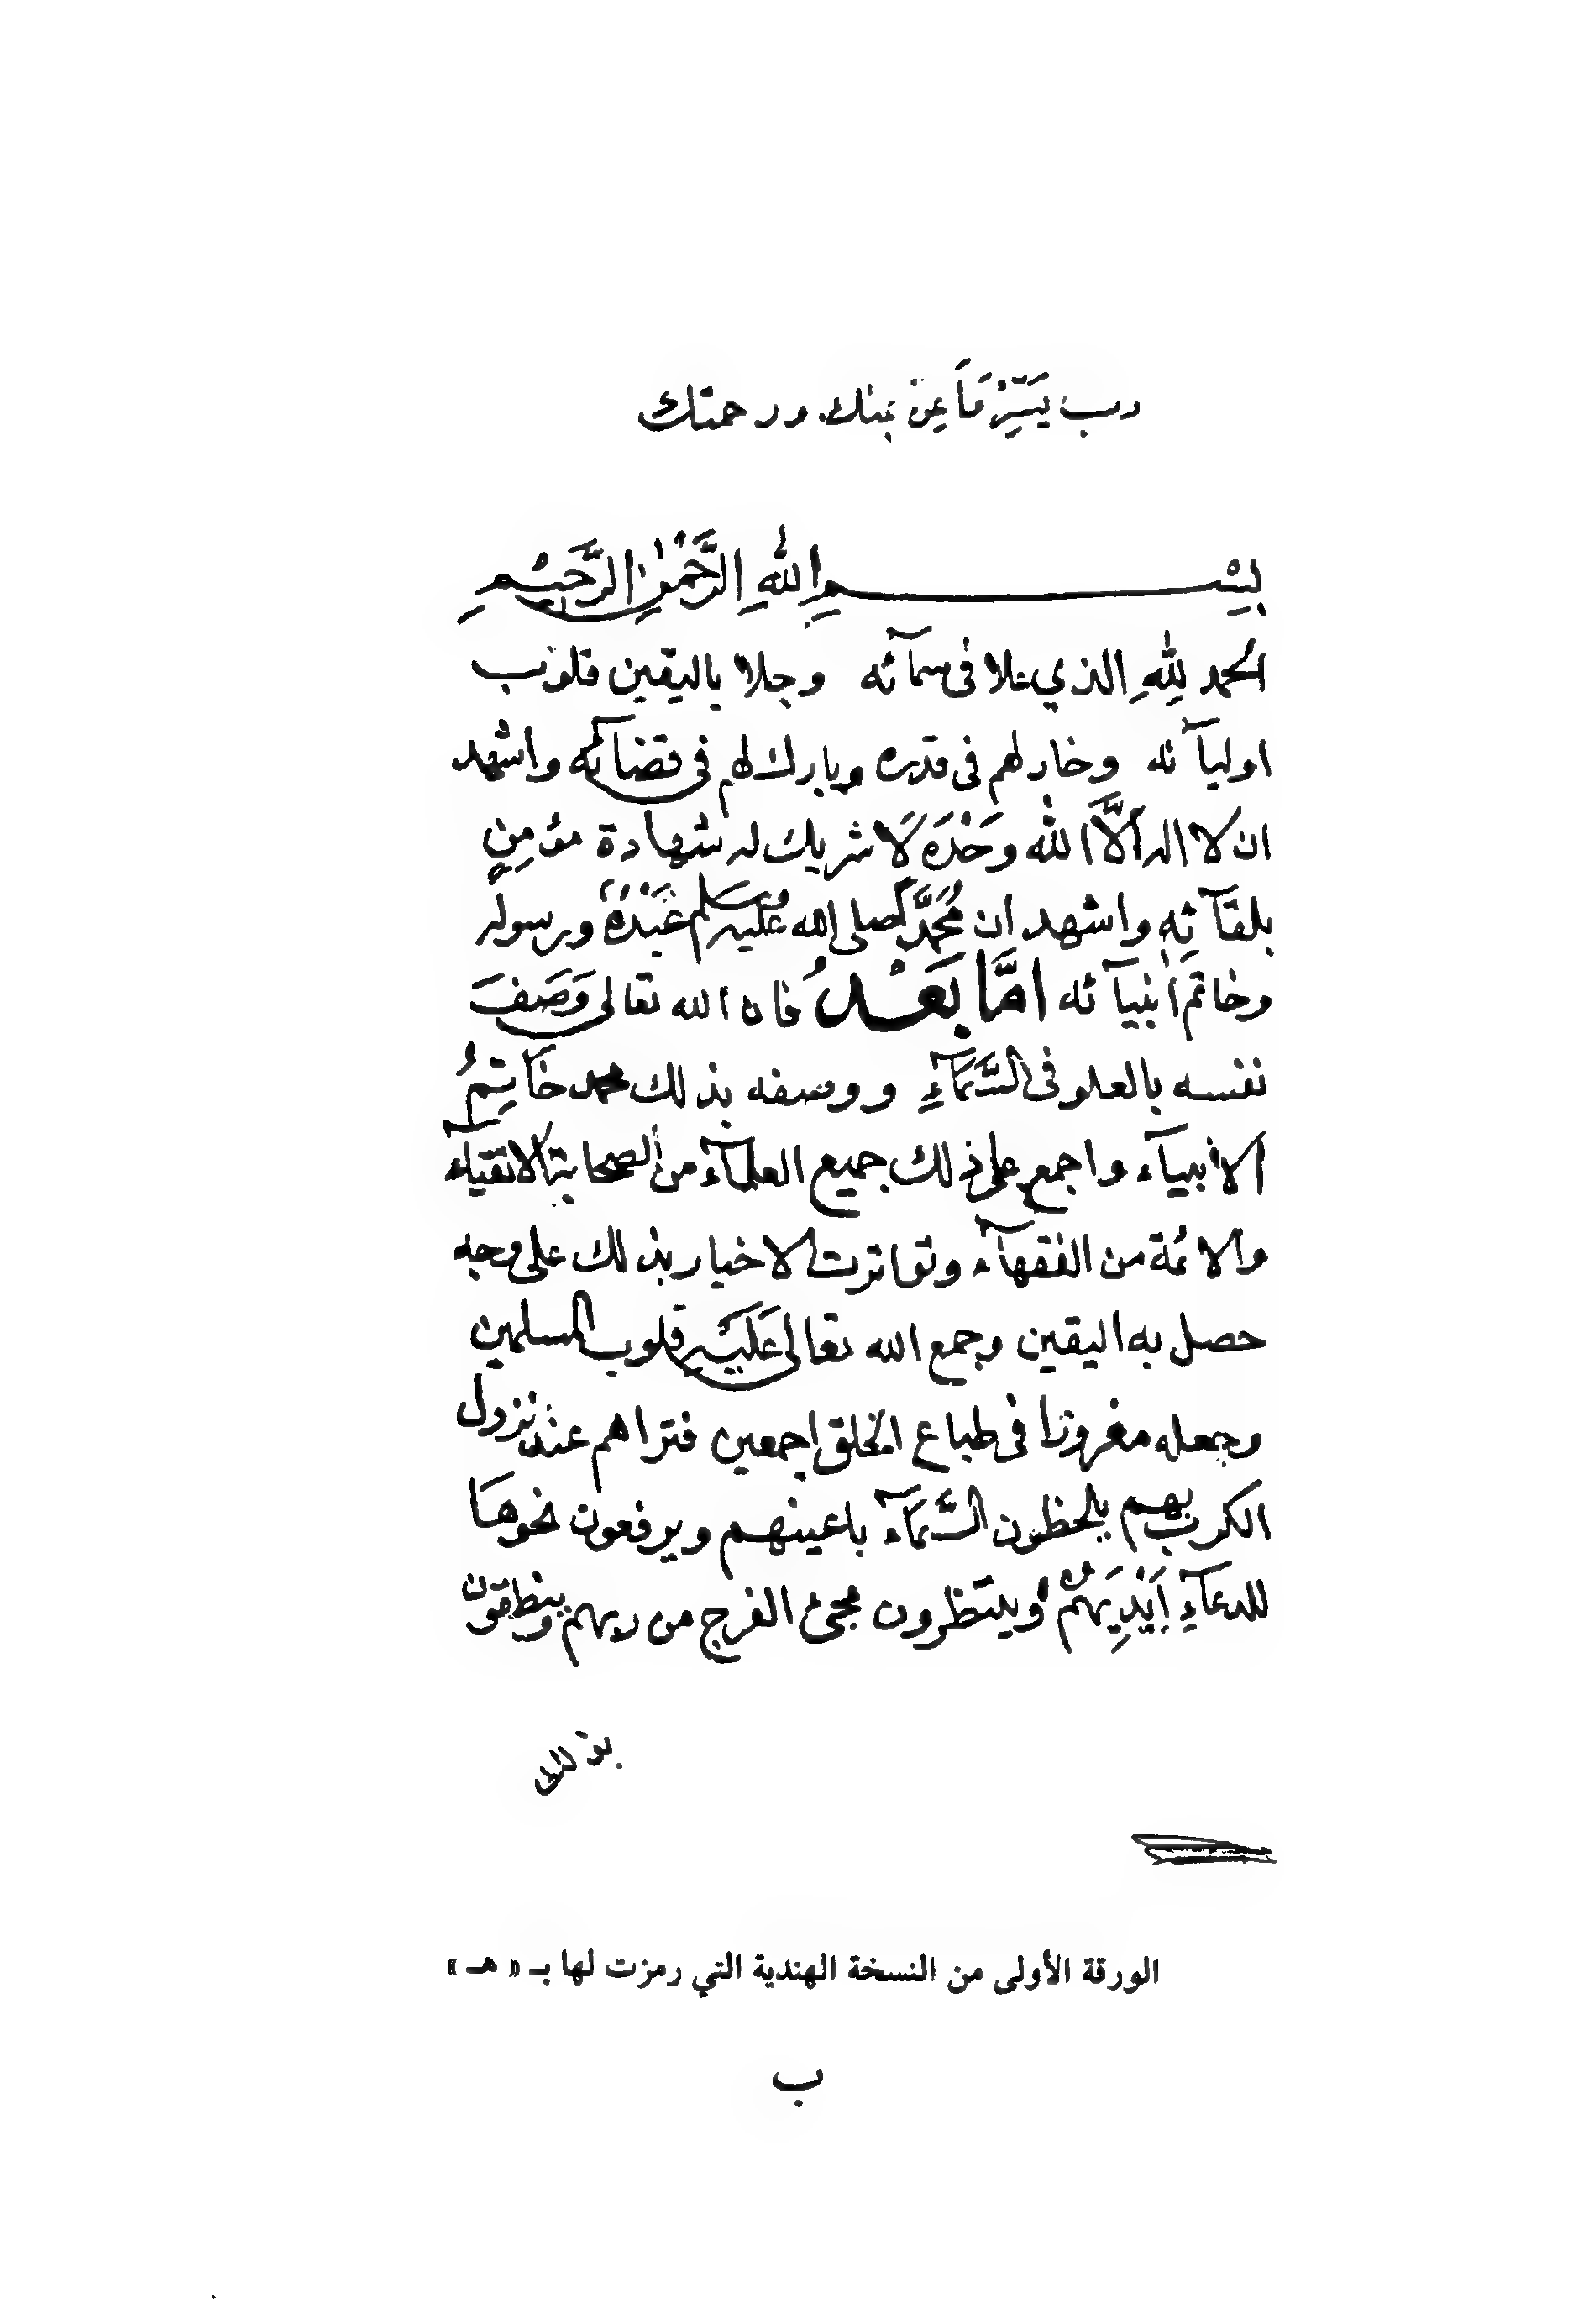 رب يَسِّرْ مَا عِنَ بمنك ورحمتك
بِسْمِ اللهِ الرَّحْمٰنِ الرَّحِيْمِ
الحمد لِلّٰهِ الذي علا فى سمآئه وجلا باليقين قلوب
اوليآئه وخار لهم فى قدره وبارك لهم فى قضائه واشهد
ان لا اله الَّا الله وَحْدَه لَا شريك له شهادة مؤمِنٍ
بلقآئِهٖ واشهد ان مُحَمَّدًا صلى الله عليه وسلم عَبْدُهٗ ورسوله
وخاتم انبيآئه امَّا بَعْدُ فان الله تعالى وَصَفَ
نفسه بالعلو فى السَّمَآءِ ووصفه بذلك محمد خَاتِمُ
الانبيآء واجمع على ذلك جميع العلمآء من الصحابة الاتقيآء
والائمة من الفقهآء وتواترت الاخبار بذلك على وجه
حصل به اليقين وجمع الله تعالى عَلَيْهِ قلوب المسلمين
وجعله مغروزا فى طباع الخلق اجمعين فتراهم عند نزول
الكرب بهم يلحظون السَّمَآء باعينهم ويرفعون نحوهَا
للدعآءِ اَيْدِيَهُمْ وينتظرون مجئ الفرج من ربهم وينطقون
الورقة الأولى من النسخة الهندية التي رمزت لها بـ « هـ »
ب